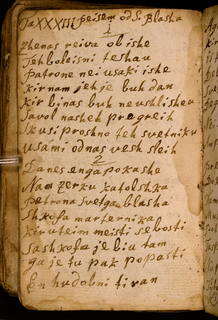 Ta XXXIII peisem od S: Blasha
1
Zhenas reiva ob ishe
Teh boleisni teshau
Patrone nei vsaki ishe
kir nam jeh je buh dan
Kir bi nas buh neushlisheu
Savol nasheh pregreih
Skusi proshno teh svetniku
usami od nas vesh sleih
2
Danes enga pokashe
Nam zerku katolshka
Petrona svetga blasha
shkofa marternika
kir u teim meisti sebosti
sa shkofa je biu tam
ga je tu pak popasti
En hudobni tiran